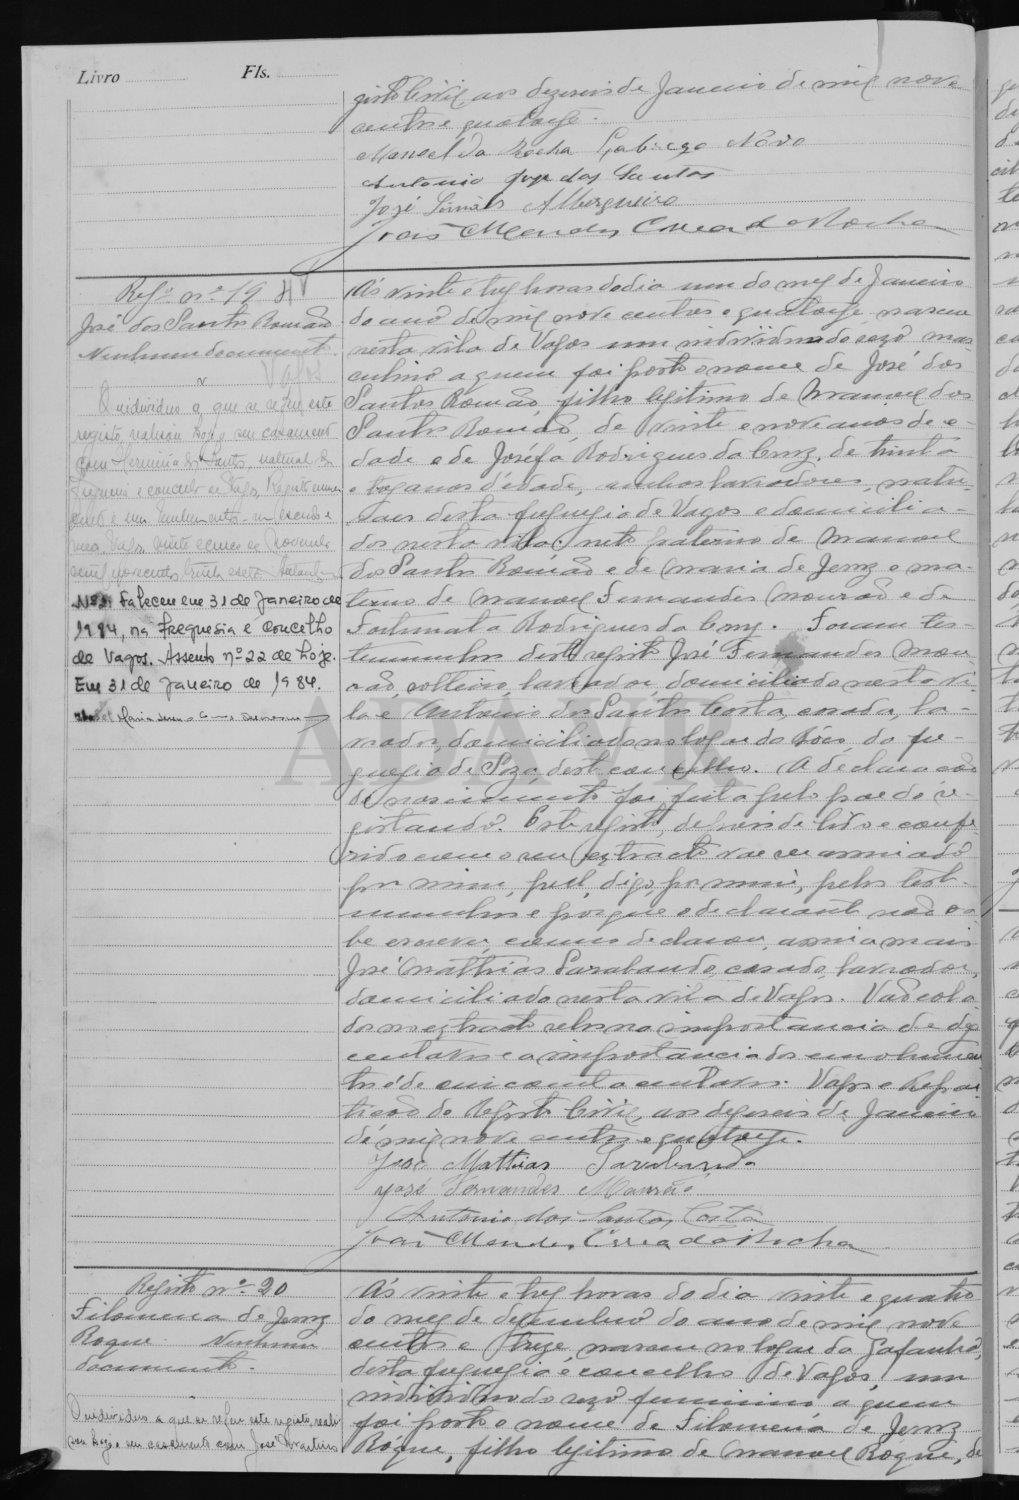 Livro
Fls.
gisto Civil, aos dezeseis de Janeiro de mil nove
centos e quatorze.
Manoel da Rocha Novo
Antonio dos Santos
José Simões Albergueiro
João Mendes Correa da Rocha
Regº nº 19
José dos Santos Romão
Nenhum documento
Vagos
O individuo a que se refere este
registo, realisou hoje seu casamento
com Herminia dos Santos, natural da
freguesia e concelho de Vagos.
vinte e cinco de Novembro
de mil novecentos trinta e sete.
Nº 2: Faleceu em 31 de Janeiro de
1984, na Freguesia e Concelho
de Vagos. Assento nº 22 de hoje.
Em 31 de Janeiro de 1984.
Ás vinte e trez horas do dia um do mez de Janeiro
do ano de mil nove centos e quatorze, nasceu
nesta vila de Vagos um individuo do sexo mas-
culino a quem foi posto o nome de José dos
Santos Romão, filho legitimo de Manoel dos
Santos Romão, de vinte e nove anos de e-
dade e de Joséfa Rodrigues da Cruz, de trinta
e trez anos de edade, ambos lavradores, natu-
raes desta freguezia de Vagos e domicilia-
dos nesta vila, neto paterno de Manoel
dos Santos Romão e de Maria de Jesuz e ma-
terno de Manoel Fernandes Mourão e de
Fortunata Rodrigues da Cruz. Foram tes-
temunhas deste registo José Fernandes Mou-
rão, solteiro, lavrador, domiciliado nesta vi-
la e Antonio dos Santos Costa, casado, la-
vrador, domiciliado no logar da Bôco, da fre-
guezia de Soza, deste concelho. A declaração
de nascimento foi feita pelo pae do re-
gistando. Este registo, depois de lido e confe-
rido com o seu extracto vae ser assinado
por mim, pell, digo, por mim, pelas teste-
munhas e porque o declarante não sa-
be escrever, como declarou, assina mais
José Mathias Sarabando, casado, lavrador,
domiciliado nesta vila de Vagos. Vão cola-
dos no extracto selos na importancia de dez
centavos e a importancia dos emolumen-
tos é de cincoenta centavos. Vagos e Repar-
tição do Registo Civil, aos dezeseis de Janeiro
de mil nove centos e quatorze.
José Mathias Sarabando
José Fernandes Mourão
Antonio dos Santos Costa
João Mendes Correa da Rocha
Registo nº 20
Filomena de Jesuz
Roque. Nenhum
documento.
O individuo a que se refere este registo, reali-
sou hoje o seu casamento com José Martins
Ás vinte e trez horas do dia vinte e quatro
do mez de dezembro do ano de mil nove
centos e treze nasceu no logar da Gafanha,
desta freguezia e concelho de Vagos, um
individuo do sexo feminino a quem
foi posto o nome de Filomena de Jesuz
Róque, filha legitima de Manoel Roque, de